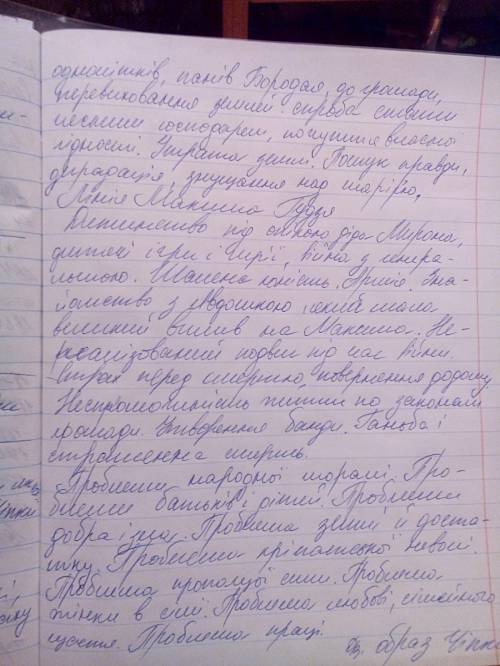 однолітків, панів Бородая, до громади,
перевиховання землі спроба стати
чесним господарем, почуття власної
гідності. Утрата землі. Пошук правди,
деградація, знущання над матір'ю,
Лінія Максима Гудзя
Дитинство під опікою діда Мирона,
дитячі ігри і мрії, війна з генера-
льшою. Шалена юність, Армія. Зна-
йомство з Явдошкою, який мала
великий вплив на Максима. Не-
реалізований подвиг під час війни.
Страх перед смертю, повернення додому
Неспроможність жити по законам
громади. Утворення банди. Ганьба і
страшенна смерть.
Проблеми народної моралі. Про-
блеми батьків і дітей. Проблеми
добра і зла. Проблема землі й доста-
тку. Проблеми кріпатської неволі.
Проблема пропащої сили. Проблема
жінки в сім'ї. Проблема любові, сімейного
щастя. Проблема праці.
образ Чіпки